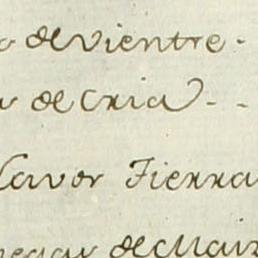 de vientre.
de Cria
lavor Tierra
de Maiz